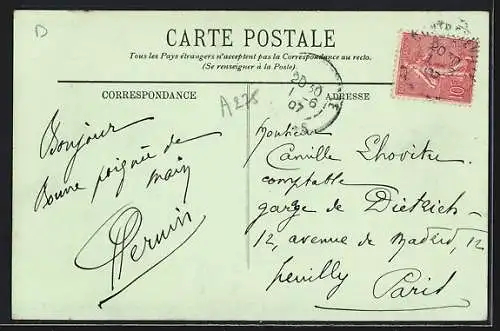 D
CARTE POSTALE
Tous les Pays étrangers n'acceptent pas la Correspondance au recto.
(Se renseigner à la Poste.)
CORRESPONDANCE
ADRESSE
A275
20 30
1 - 6
07
10
Bonjour
Bonne poignée de
main
Monsieur
Camille
comptable
garage de Dietrich
12, avenue de Madrid, 12
Neuilly
Paris